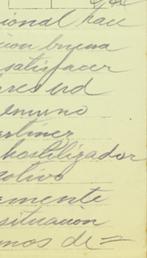 cional hace
cion buena
satisfacer
eres ud
emuno
artinez
hostilizador
olivo
amente
situacion
mos de =